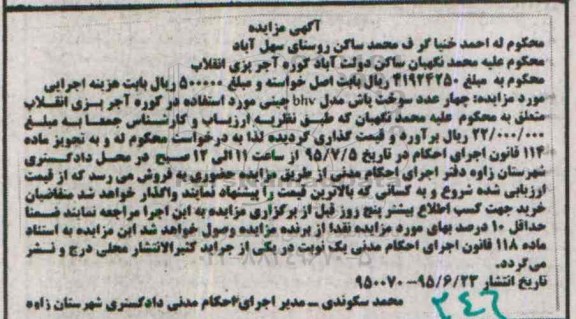 آگهی مزایده
محکوم له احمد خنیا گر ف محمد ساکن روستای سهل آباد
محکوم علیه محمد نگهبان ساکن دولت آباد کوره آجر پزی انقلاب
محکوم به مبلغ ۴۱۹۲۴۲۵۰ ریال بابت اصل خواسته و مبلغ ۵۰۰۰۰۰ ریال بابت هزینه اجرایی
مورد مزایده: چهار عدد سوخت پاش مدل bhv چینی مورد استفاده در کوره آجر پزی انقلاب
متعلق به محکوم علیه محمد نگهبان که طبق نظریه ارزیاب و کارشناس جمعا به مبلغ
۲۲/۰۰۰/۰۰۰ ریال برآورد و قیمت گذاری گردیده لذا به درخواست محکوم له و به تجویز ماده
۱۱۴ قانون اجرای احکام در تاریخ ۹۵/۷/۵ از ساعت ۱۱ الی ۱۲ صبح در محل دادگستری
شهرستان زاوه دفتر اجرای احکام مدنی از طریق مزایده حضوری به فروش می رسد که از قیمت
ارزیابی شده شروع و به کسانی که بالاترین قیمت را پیشنهاد نمایند واگذار خواهد شد متقاضیان
خرید جهت کسب اطلاع بیشتر پنج روز قبل از برگزاری مزایده به این اجرا مراجعه نمایند ضمنا
حداقل ۱۰ درصد بهای مورد مزایده نقدا از برنده مزایده وصول خواهد شد این مزایده به استناد
ماده ۱۱۸ قانون اجرای احکام مدنی یک نوبت در یکی از جراید کثیرالانتشار محلی درج و نشر
می گردد.
تاریخ انتشار ۹۵/۶/۲۳- ۹۵۰۰۷۰
محمد سکوندی – مدیر اجرای احکام مدنی دادگستری شهرستان زاوه
۳۴۶